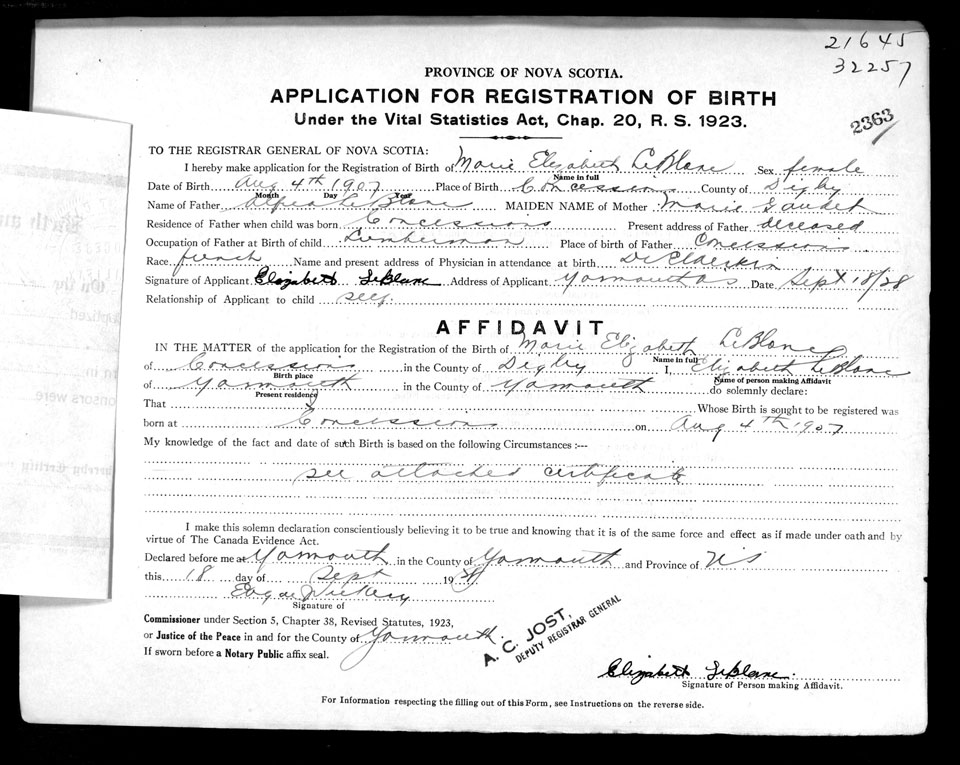 21645
32257
PROVINCE OF NOVA SCOTIA.
APPLICATION FOR REGISTRATION OF BIRTH
Under the Vital Statistics Act, Chap. 20, R. S. 1923.
2363
TO THE REGISTRAR GENERAL OF NOVA SCOTIA:
I hereby make application for the Registration of Birth of Marie Elizabeth LeBlanc Sex female
Name in full
Date of Birth Aug 4th 1907 Place of Birth Concessions County of Digby
Month Day Year
Name of Father LeBlanc MAIDEN NAME of Mother Marie Gaudet
Residence of Father when child was born Concessions Present address of Father deceased
Occupation of Father at Birth of child Lumberman Place of birth of Father Concessions
Race french Name and present address of Physician in attendance at birth
Signature of Applicant Elizabeth LeBlanc Address of Applicant Yarmouth NS Date Sept 18/28
Relationship of Applicant to child self
AFFIDAVIT
IN THE MATTER of the application for the Registration of the Birth of Marie Elizabeth LeBlanc
Name in full
of Concessions in the County of Digby I, Elizabeth LeBlanc
Birth place Name of person making Affidavit
of Yarmouth in the County of Yarmouth do solemnly declare:
Present residence
That I Whose Birth is sought to be registered was
born at Concessions on Aug 4th 1907
My knowledge of the fact and date of such Birth is based on the following Circumstances :---
see attached certificate
I make this solemn declaration conscientiously believing it to be true and knowing that it is of the same force and effect as if made under oath and by
virtue of The Canada Evidence Act.
Declared before me at Yarmouth in the County of Yarmouth and Province of NS
this 18 day of Sept 1928
Signature of
Commissioner under Section 5, Chapter 38, Revised Statutes, 1923,
or Justice of the Peace in and for the County of Yarmouth.
If sworn before a Notary Public affix seal.
A. C. JOST,
DEPUTY REGISTRAR GENERAL
Elizabeth LeBlanc
Signature of Person making Affidavit.
For Information respecting the filling out of this Form, see Instructions on the reverse side.